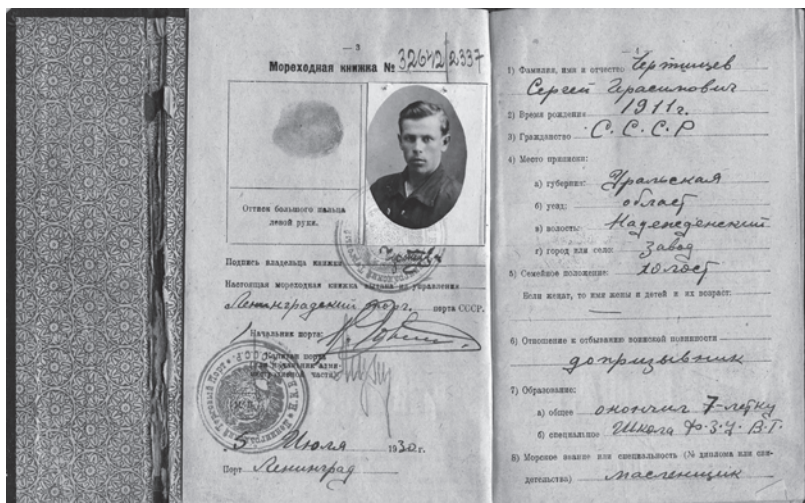 — 3
Мореходная книжка № 32642/2337
Оттиск большого пальца
левой руки.
Подпись владельца книжки
Настоящая мореходная книжка выдана из управления
Ленинградский торг. порта СССР.
Начальник порта:
Капитан порта
5 Июля 1930 г.
Порт Ленинград
1) Фамилия, имя и отчество Чертищев
Сергей Герасимович
2) Время рождения 1911 г.
3) Гражданство С. С. С. Р
4) Место приписки:
а) губерния: Уральская
б) уезд: област
в) волость: Надежденский
г) город или село: Завод
5) Семейное положение: холост
Если женат, то имя жены и детей и их возраст:
6) Отношение к отбыванию воинской повинности
допризывник
7) Образование:
а) общее окончил 7-летку
б) специальное Школа Ф.З.У. В.Т.
8) Морское звание или специальность (№ диплома или сви-
детельства) масленщик